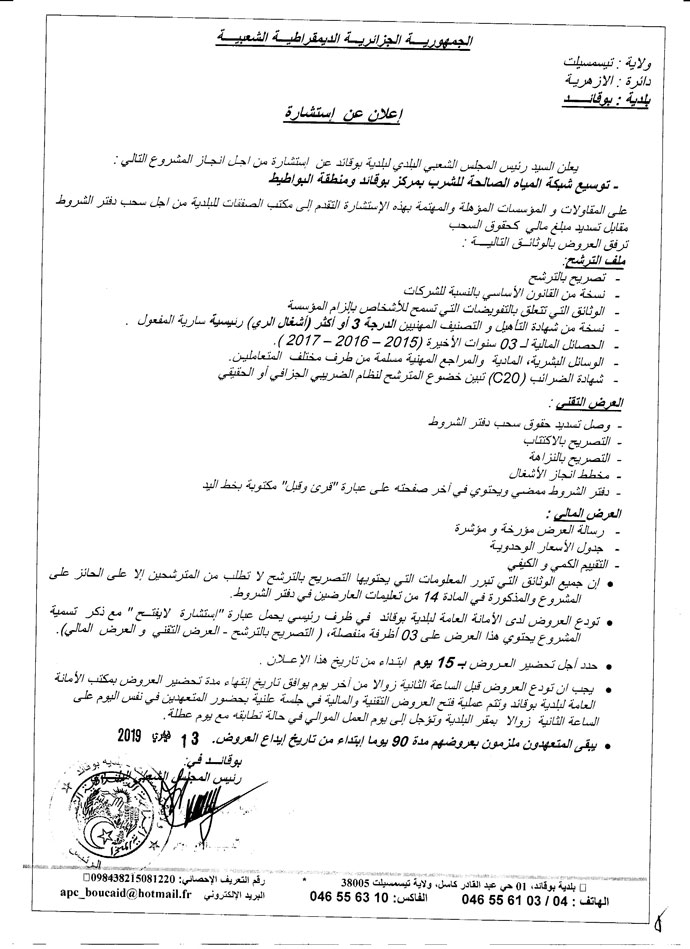 الجمهوريـــة الجزائريـة الديمقراطيـة الشعبيـة
ولاية : تيسمسيلت
دائرة : الازهرية
بلدية : بوقائـــد
إعلان عن إستشارة
يعلن السيد رئيس المجلس الشعبي البلدي لبلدية بوقائد عن إستشارة من اجل انجاز المشروع التالي :
- توسيع شبكة المياه الصالحة للشرب بمركز بوقائد ومنطقة البواطيط
على المقاولات و المؤسسات المؤهلة والمهتمة بهذه الإستشارة التقدم إلى مكتب الصفقات للبلدية من اجل سحب دفتر الشروط
مقابل تسديد مبلغ مالي كحقوق السحب
ترفق العروض بالوثائق التاليـــة :
ملف الترشح:
- تصريح بالترشح
- نسخة من القانون الأساسي بالنسبة للشركات
- الوثائق التي تتعلق بالتفويضات التي تسمح للأشخاص بإلزام المؤسسة
- نسخة من شهادة التأهيل و التصنيف المهنيين الدرجة 3 أو أكثر (أشغال الري) رئيسية سارية المفعول .
- الحصائل المالية لـ 03 سنوات الأخيرة (2015 – 2016 – 2017 ).
- الوسائل البشرية، المادية والمراجع المهنية مسلمة من طرف مختلف المتعاملين.
- شهادة الضرائب (C20) تبين خضوع المترشح لنظام الضريبي الجزافي أو الحقيقي
العرض التقني :
- وصل تسديد حقوق سحب دفتر الشروط
- التصريح بالاكتتاب
- التصريح بالنزاهة
- مخطط انجاز الأشغال
- دفتر الشروط ممضي ويحتوي في أخر صفحته على عبارة "قرئ وقبل" مكتوبة بخط اليد
العرض المالي :
- رسالة العرض مؤرخة و مؤشرة
- جدول الأسعار الوحدوية
- التقييم الكمي و الكيفي
• إن جميع الوثائق التي تبرر المعلومات التي يحتويها التصريح بالترشح لا تطلب من المترشحين إلا على الحائز على
المشروع والمذكورة في المادة 14 من تعليمات العارضين في دفتر الشروط.
• تودع العروض لدى الأمانة العامة لبلدية بوقائد في ظرف رئيسي يحمل عبارة "إستشارة لايفتح " مع ذكر تسمية
المشروع يحتوي هذا العرض على 03 أظرفة منفصلة، ( التصريح بالترشح - العرض التقني و العرض المالي).
• حدد أجل تحضير العروض بـ 15 يوم ابتداء من تاريخ هذا الإعلان .
• يجب ان تودع العروض قبل الساعة الثانية زوالا من أخر يوم يوافق تاريخ إنتهاء مدة تحضير العروض بمكتب الأمانة
العامة لبلدية بوقائد وتتم عملية فتح العروض التقنية والمالية في جلسة علنية بحضور المتعهدين في نفس اليوم على
الساعة الثانية زوالا بمقر البلدية وتؤجل إلى يوم العمل الموالي في حالة تطابقه مع يوم عطلة.
• يبقى المتعهدون ملزمون بعروضهم مدة 90 يوما إبتداء من تاريخ إيداع العروض. 13 فيفري 2019
بوقائـد في:
رئيس المجلس الشعبي
بلدية بوقائد، 01 حي عبد القادر كاسل، ولاية تيسمسيلت 38005
رقم التعريف الإحصائي: 098438215081220
الهاتف : 04 / 03 61 55 046 الفاكس: 10 63 55 046
البريد الالكتروني apc_boucaid@hotmail.fr